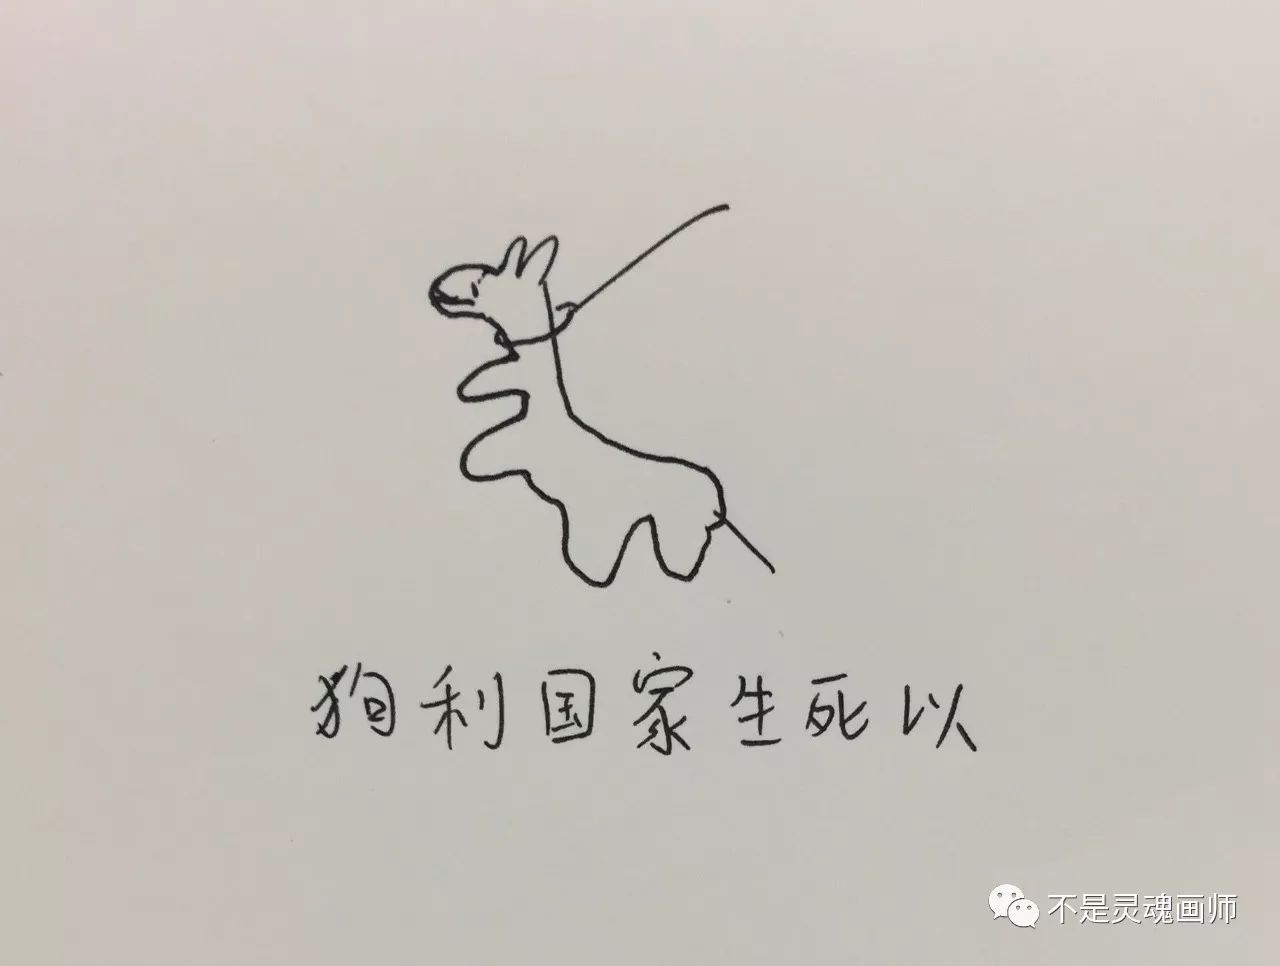 狗利国家生死以
不是灵魂画师